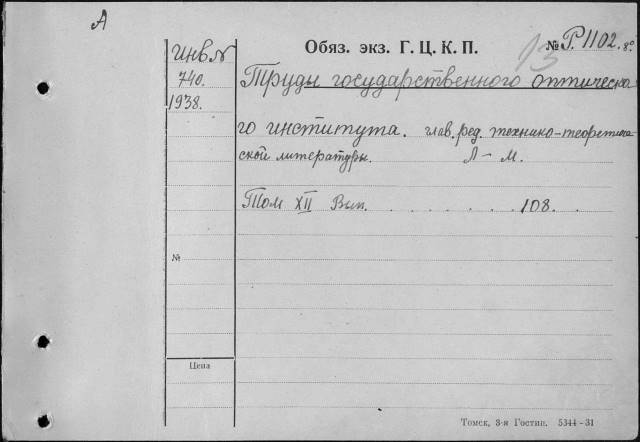 А
Инв. №
740.
1938.
Обяз. экз. Г. Ц. К. П.
13
№ Р. 1102. 8°
Труды государственного оптическа
го института. глав. ред. технико-теоретич
еской литературы. Л – М.
Том XII Вып. . . . . . . . 108.
№
Цена
Томск, 3-я Гостип. 5344–31